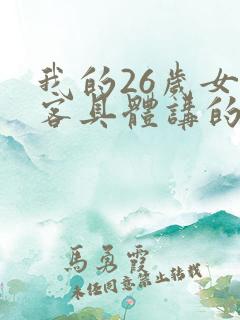 我的26歲女
客具體講的
馬勇霞
未任同意禁止转载